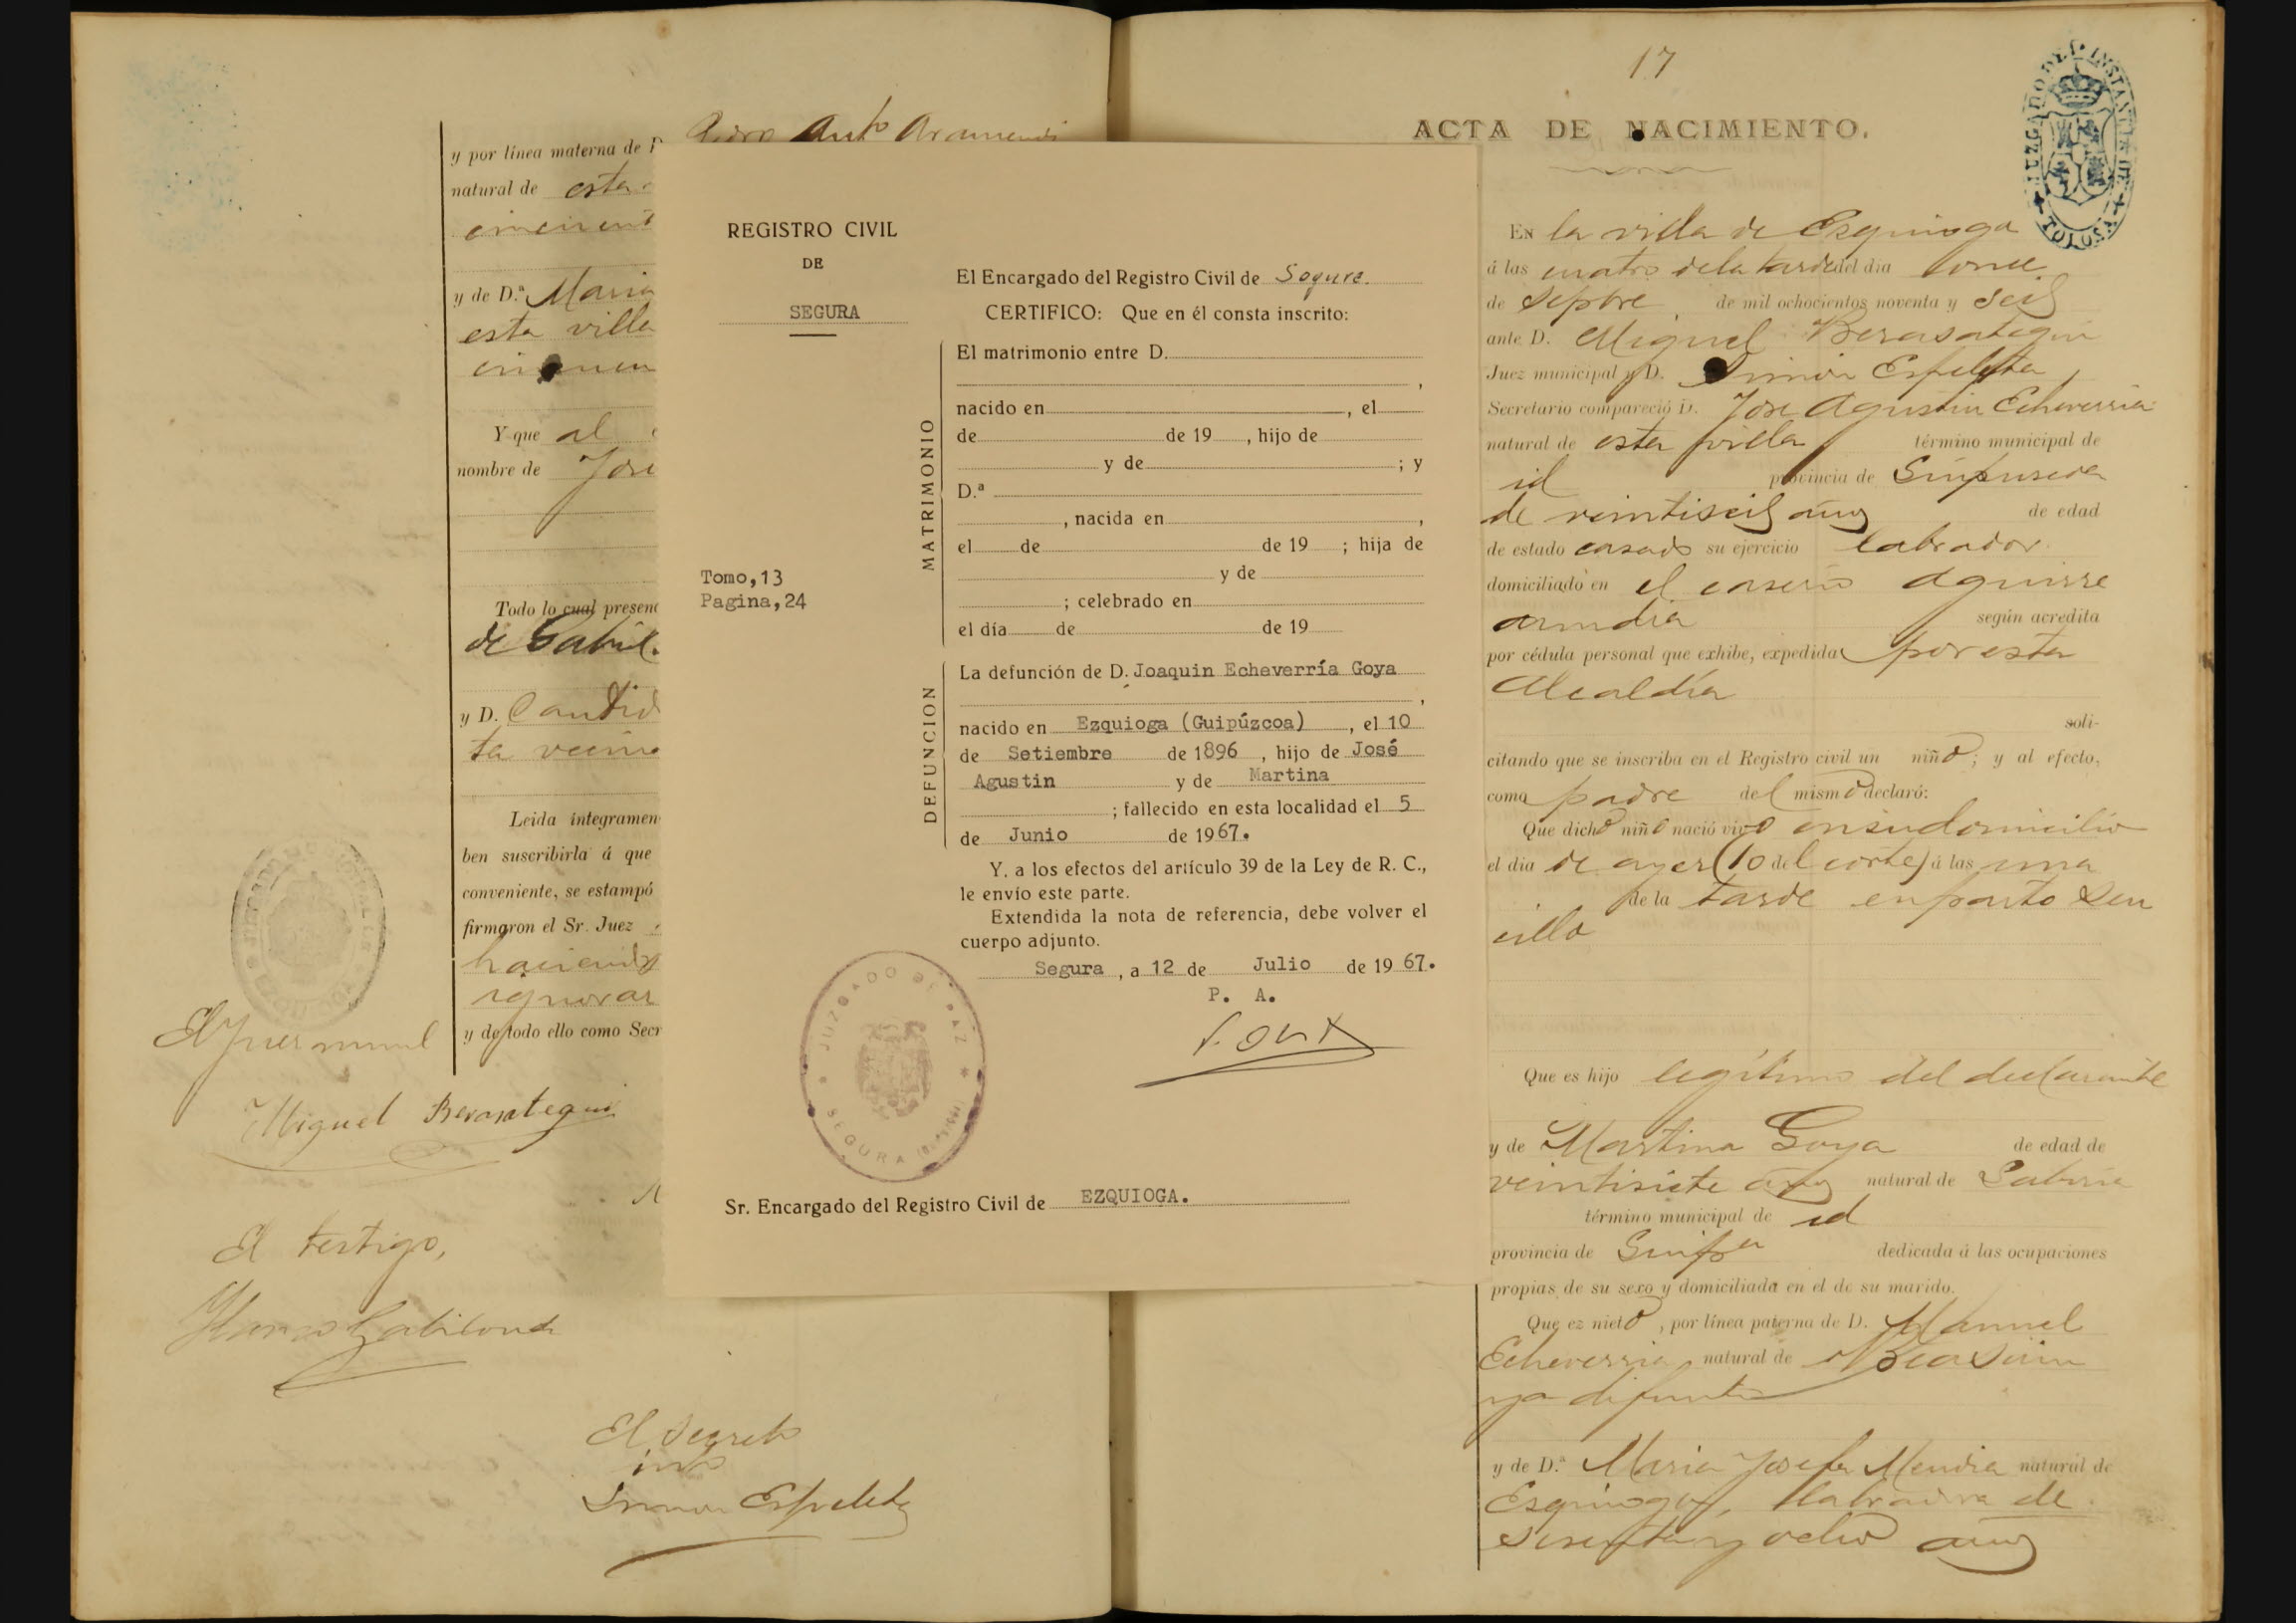 y por línea materna de
natural de esta
y de D.ª Maria
esta villa
Y que al
nombre de Jose
Todo lo cual presen
de Gabir
y D. Candid
ta vecino
Leida íntegramen
ben suscribirla á que
conveniente, se estampó
firmaron el Sr. Juez
haciendo
ignorar
y de todo ello como Secr
El Juez munl
Miguel Berasategui
El testigo,
El Secreto
into
Simon Espeleta
Anto Aramendi
REGISTRO CIVIL
DE
SEGURA
Tomo,13
Pagina,24
El Encargado del Registro Civil de Segura.
CERTIFICO: Que en él consta inscrito:
MATRIMONIO
El matrimonio entre D.
,
nacido en , el
de de 19 , hijo de
y de ; y
D.ª
, nacida en ,
el de de 19 ; hija de
y de
; celebrado en
el día de de 19
DEFUNCION
La defunción de D. Joaquin Echeverría Goya
,
nacido en Ezquioga (Guipúzcoa) , el 10
de Setiembre de 1896 , hijo de José
Agustin y de Martina
; fallecido en esta localidad el 5
de Junio de 1967.
Y. a los efectos del artículo 39 de la Ley de R. C.,
le envío este parte.
Extendida la nota de referencia, debe volver el
cuerpo adjunto.
Segura , a 12 de Julio de 19 67.
P. A.
JUZGADO DE PAZ
SEGURA
Sr. Encargado del Registro Civil de EZQUIOGA.
17
ACTA DE NACIMIENTO.
JUZGADO DE 1ª INSTANCIA DE
TOLOSA
En la villa de Ezquioga
á las cuatro de la tarde del dia once
de Septbre de mil ochocientos noventa y seis
ante D. Miguel Berasategui
Juez municipal y D. Simón Espeleta
Secretario compareció D. Jose Agustin Echeverria
natural de esta villa término municipal de
id provincia de Guipuzcoa
de veintiseis años de edad
de estado casado su ejercicio labrador
domiciliado en el caserio Aguirre
arrndia según acredita
por cédula personal que exhibe, expedida por esta
Alcaldía
soli-
citando que se inscriba en el Registro civil un niño; y al efecto,
como padre del mismo declaró:
Que dicho niño nació vivo en su domicilio
el dia de ayer (10 del corte) á las una
de la tarde en parto sen
cillo
Que es hijo legítimo del declarante
y de Martina Goya de edad de
veintisiete años natural de Gabiria
término municipal de id
provincia de Guipza dedicada á las ocupaciones
propias de su sexo y domiciliada en el de su marido.
Que es nieto, por línea paterna de D. Manuel
Echeverria, natural de Beasain
ya difunto
y de D.ª Maria Josefa Mendia natural de
Ezquioga, labradora de
sesenta y ocho años